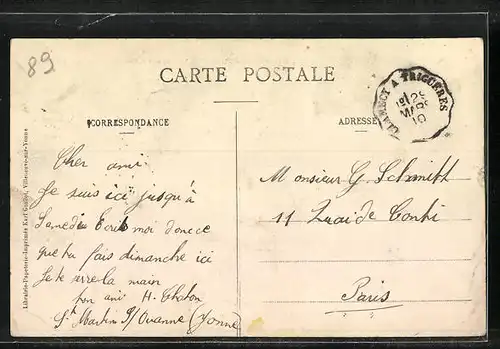 89
CARTE POSTALE
CORRESPONDANCE
ADRESSE
A TRIGUÈRES
29
MARS
10
Librairie-Papeterie-Imprimée Karl Guillot, Villeneuve-sur-Yonne
Cher ami
Je suis ici jusqu'à
Samedi Ecris moi donc ce
que tu fais dimanche ici
Je te serre la main
ton ami H. Chaton
St Martin s/ Ouanne (Yonne)
Monsieur G. Schmitt
11 Quai de Conti
Paris